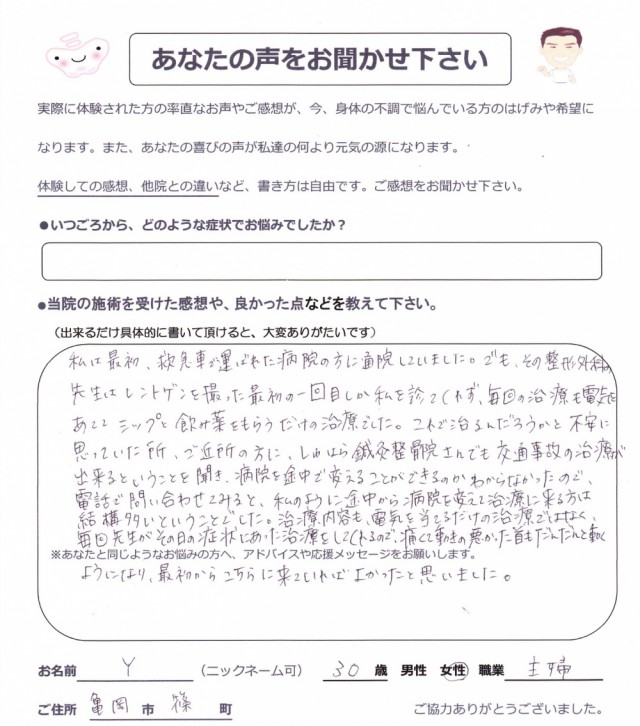 あなたの声をお聞かせ下さい
実際に体験された方の率直なお声やご感想が、今、身体の不調で悩んでいる方のはげみや希望に
なります。また、あなたの喜びの声が私達の何より元気の源になります。
体験しての感想、他院との違いなど、書き方は自由です。ご感想をお聞かせ下さい。
●いつごろから、どのような症状でお悩みでしたか？
●当院の施術を受けた感想や、良かった点などを教えて下さい。
（出来るだけ具体的に書いて頂けると、大変ありがたいです）
私は最初、救急車が運ばれた病院の方に通院していました。でも、その整形外科の
先生はレントゲンを撮った最初の一回目しか私を診てくれず、毎回の治療も電気を
あててシップと飲み薬をもらうだけの治療でした。これで治るんだろうかと不安に
思っていた所、ご近所の方に、しゅはら鍼灸整骨院さんでも交通事故の治療が
出来るということを聞き、病院を途中で変えることができるのかわからなかったので、
電話で問い合わせてみると、私のように途中から病院を変えて治療に来る方は
結構多いということでした。治療内容も、電気を当てるだけの治療ではなく、
毎回先生がその日の症状にあった治療をしてくれるので、痛くて動きの悪かった首もだんだんと動く
※あなたと同じようなお悩みの方へ、アドバイスや応援メッセージをお願いします。
ようになり、最初からこちらに来ていれば よかったと思いました。
お名前 Y （ニックネーム可） 30 歳 男性 女性 職業 主婦
ご住所 亀岡 市 篠 町 ご協力ありがとうございました。